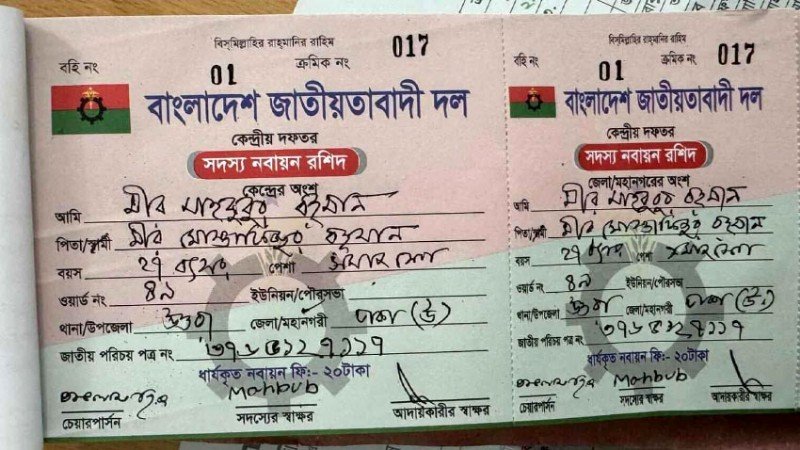 বিস্‌মিল্লাহির রাহ্‌মানির রাহিম
বহি নং 01 ক্রমিক নং 017
বাংলাদেশ জাতীয়তাবাদী দল
কেন্দ্রীয় দফতর
সদস্য নবায়ন রশিদ
কেন্দ্রের অংশ
আমি মীর মাহবুবুর রহমান
পিতা/স্বামী মীর রহমান
বয়স ২৭ পেশা
ওয়ার্ড নং ৪৯ ইউনিয়ন/পৌরসভা
থানা/উপজেলা উত্তরা জেলা/মহানগরী ঢাকা (উঃ)
জাতীয় পরিচয় পত্র নং
ধার্যকৃত নবায়ন ফি:- ২০টাকা
Mahbub
চেয়ারপার্সন সদস্যের স্বাক্ষর আদায়কারীর স্বাক্ষর
বিস্‌মিল্লাহির রাহ্‌মানির রাহিম
বহি নং 01 ক্রমিক নং 017
বাংলাদেশ জাতীয়তাবাদী দল
কেন্দ্রীয় দফতর
সদস্য নবায়ন রশিদ
জেলা/মহানগরের অংশ
আমি মীর মাহবুবুর রহমান
পিতা/স্বামী মীর রহমান
বয়স ২৭ পেশা
ওয়ার্ড নং ৪৯ ইউনিয়ন/পৌরসভা
থানা/উপজেলা উত্তরা জেলা/মহানগরী ঢাকা (উঃ)
জাতীয় পরিচয় পত্র নং
ধার্যকৃত নবায়ন ফি:- ২০টাকা
Mahbub
চেয়ারপার্সন সদস্যের স্বাক্ষর আদায়কারীর স্বাক্ষর